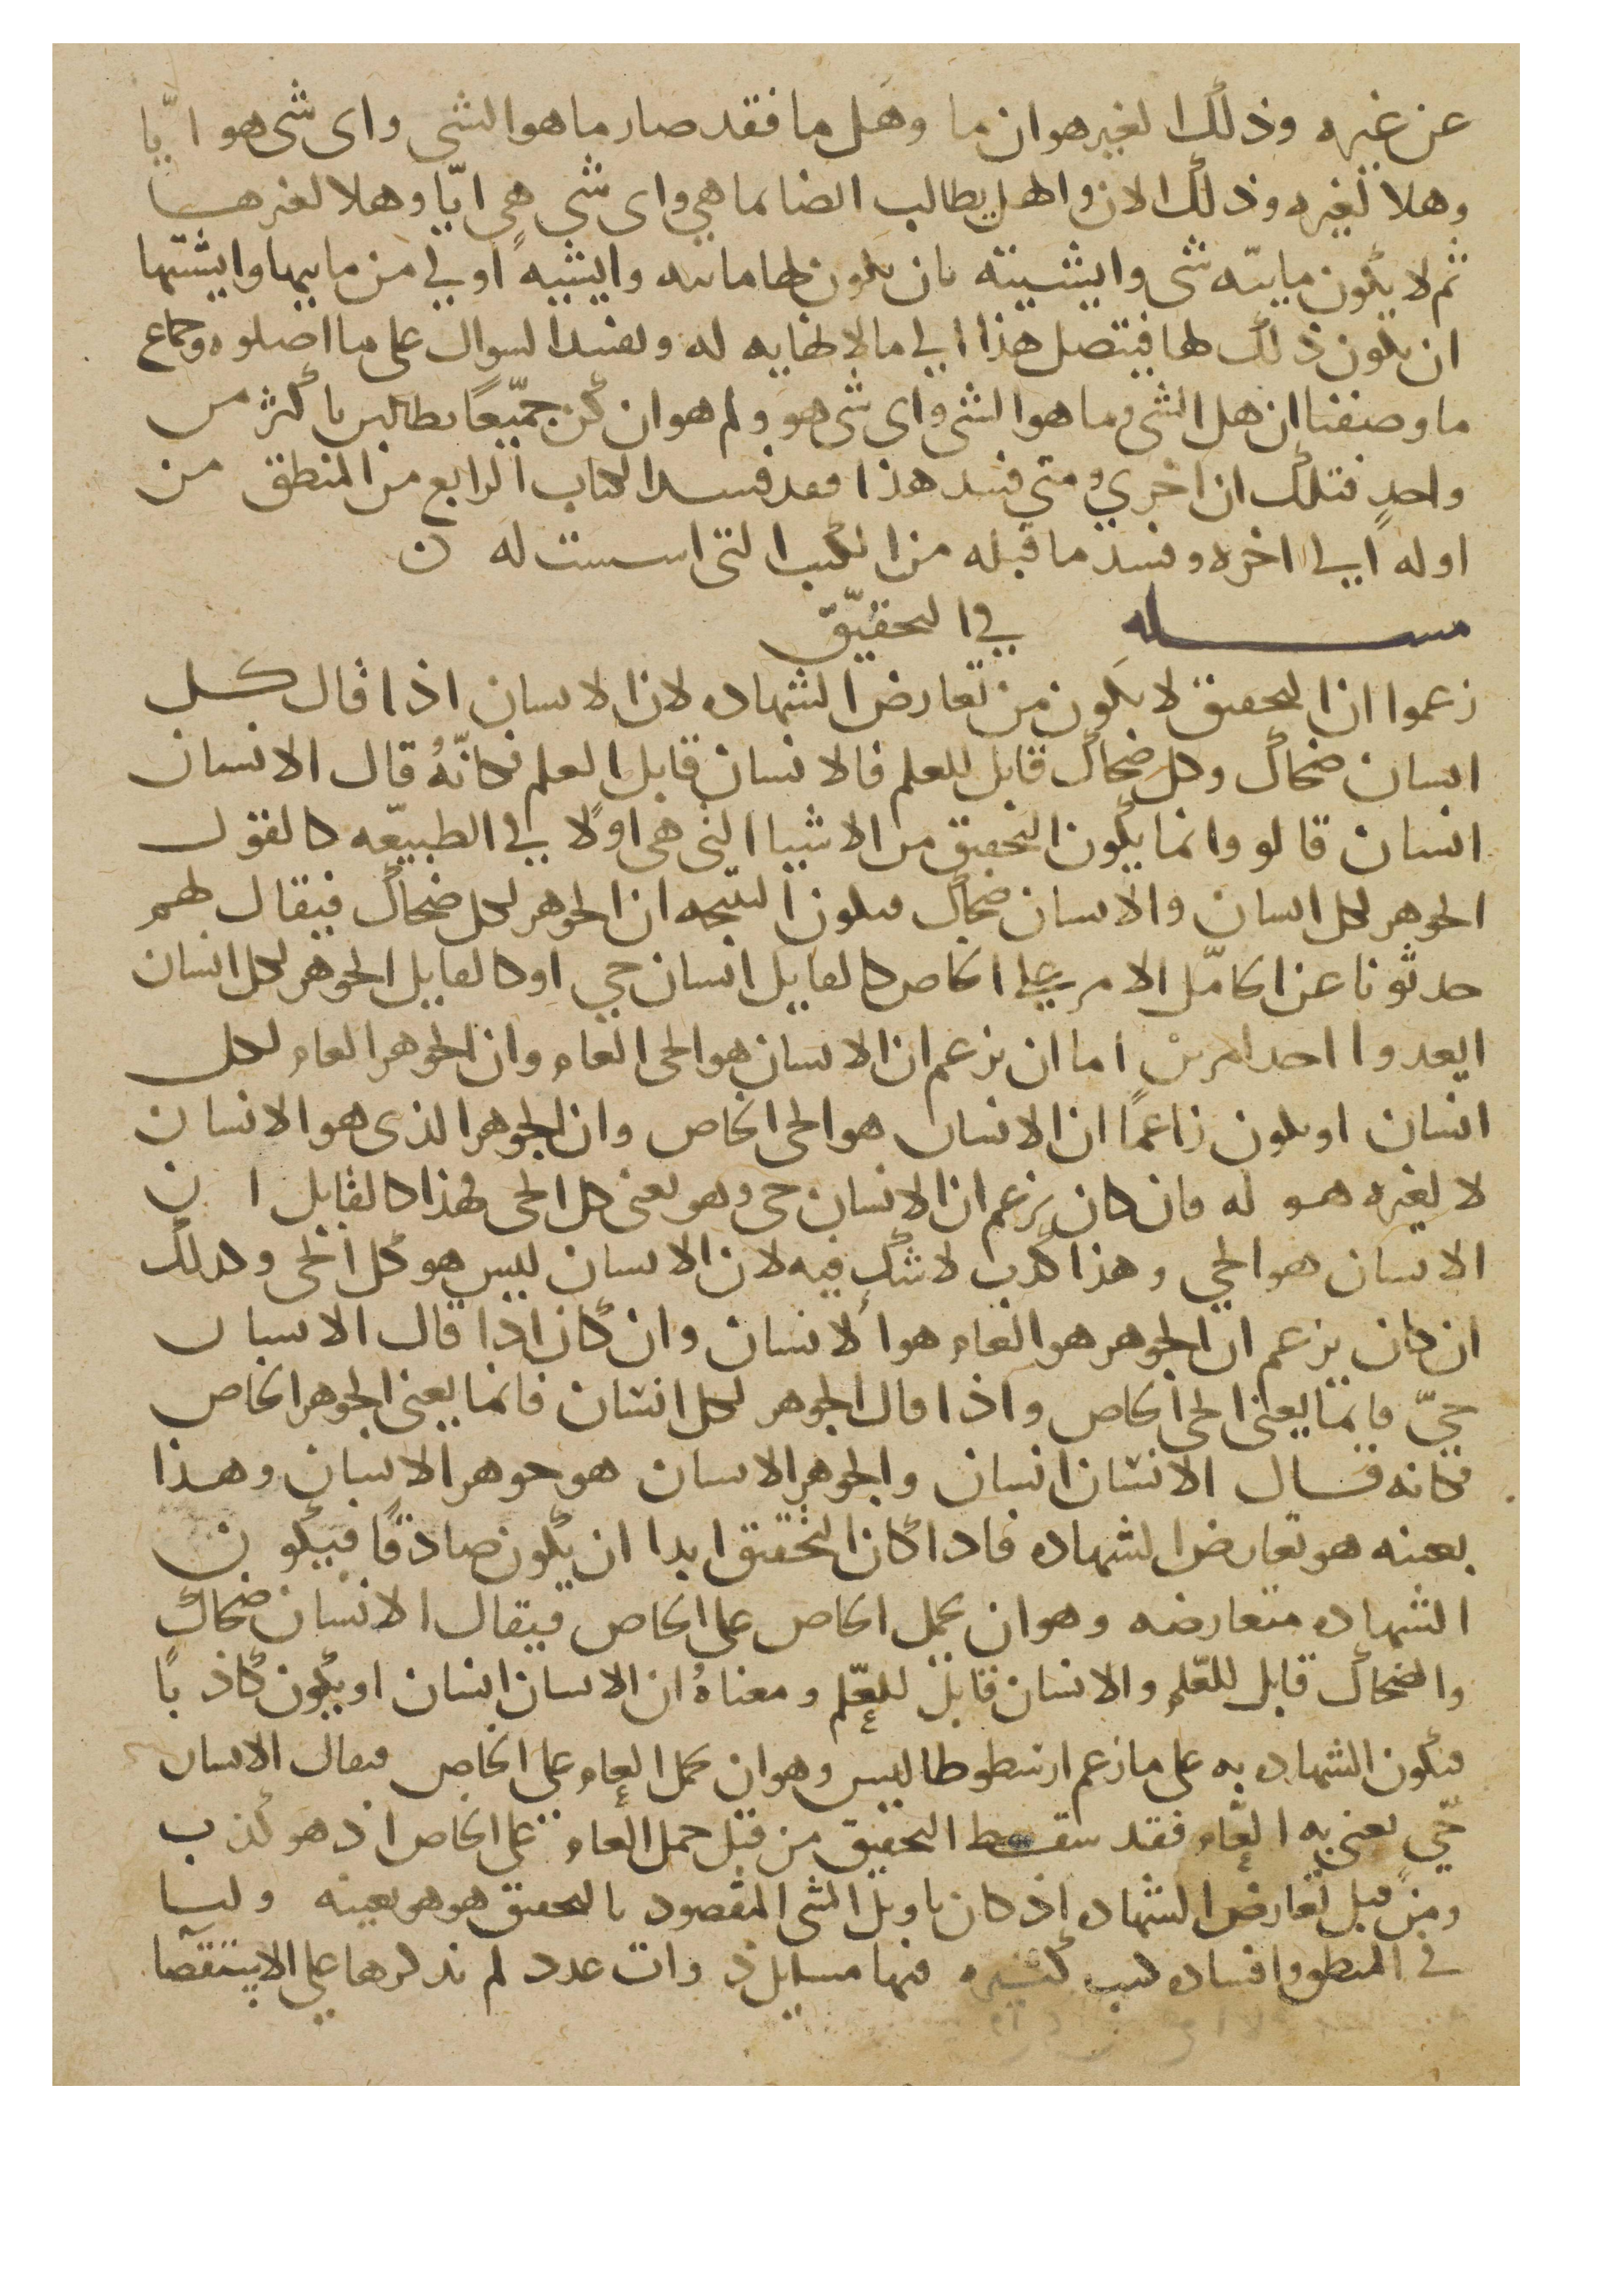 عن غيره وذلك الغير هو ان ما وهل ما فقد صار ما هو الشي واى شى هو ايّا
وهلا لغيره وذلك الان والهل يطالب ايضا بما هي واى شي هي ايّا وهلا لغيرهسا
ثم لا يكون مايته شى وايشيته بان يكون لها مايته وايشيه اولي من ماييها وايشتها
ان يكون ذلك لها فيتصل هذا الي ما لا نهايه له ويفسد السوال على ما اصلوه وجماع
ما وصفنا ان هل الشى وما هو الشى واى شى هو ولم هو ان كن جميعًا يطالبن باكثر من
واحدٍ فتلك ان اخري ومتي فسد هذا فقد فسد الكتاب الرابع من المنطق من
اوله الي اخره وفسد ما قبله من الكتب التى اسست له ن
مسله في التحقيق
زعموا ان التحقيق لا يكون من تعارض الشهاده لان الانسان اذا قال كل
انسان ضحاك وكل ضحاك قابل للعلم فالانسان قابل العلم فكانّهُ قال الانسان
انسان قالو وانما يكون التحقيق من الاشيا التى هي اولا في الطبيعّه كالقول
الجوهر لكل انسان والانسان ضحاك فيكون النتيجه ان الجوهر لكل ضحاك فيقال لهم
حدثونا عن الحامل الامر على الخاص كالقايل انسان حي او كالقايل الجوهر لكل انسان
ايعدوا احد امرين اما ان يزعم ان الانسان هو الحى العام وان الجوهر العام لكل
انسان او يكون زاعمًا ان الانسان هو الحى الخاص وان الجوهر الذى هو الانسان
لا لغيره هو له فان كان يزعم ان الانسان حى وهو يعنى كل الحى فهذا كالقايل ان
الانسان هو الحي وهذا كذب لا شك فيه لان الانسان ليس هو كل الحى وكذلك
ان كان يزعم ان الجوهر هو العام هو الانسان وان كان اذا قال الانسان
حيّ فانما يعنى الحى الخاص واذا قال الجوهر لكل انسان فانما يعنى الجوهر الخاص
فكانه قال الانسان انسان والجوهر الانسان هو جوهر الانسان وهذا
بعينه هو تعارض الشهاده فاذا كان التحقيق ابدا ان يكون صادقًا فيكون
الشهاده متعارضه وهو ان يحمل الخاص على الخاص فيقال الانسان ضحاك
والضحاك قابل للعّلم والانسان قابل للعّلم ومعناهُ ان الانسان انسان او يكون كاذبًا
فيكون الشهاده به على ما زعم ارسطوطاليس وهو ان يحمل العام على الخاص فيقال الانسان
حّي يعنى به العام فقد سقط التحقيق من قبل حمل العام على الخاص اذ هو كذب
ومن قبل تعارض الشهاده اذ كان تاويل الشى المقصود بالتحقيق هو هو بعينه ولنا
في المنطق وافساده كتب كثيره فيها مسايل ذوات عدد لم نذكرها علي الاستقصا